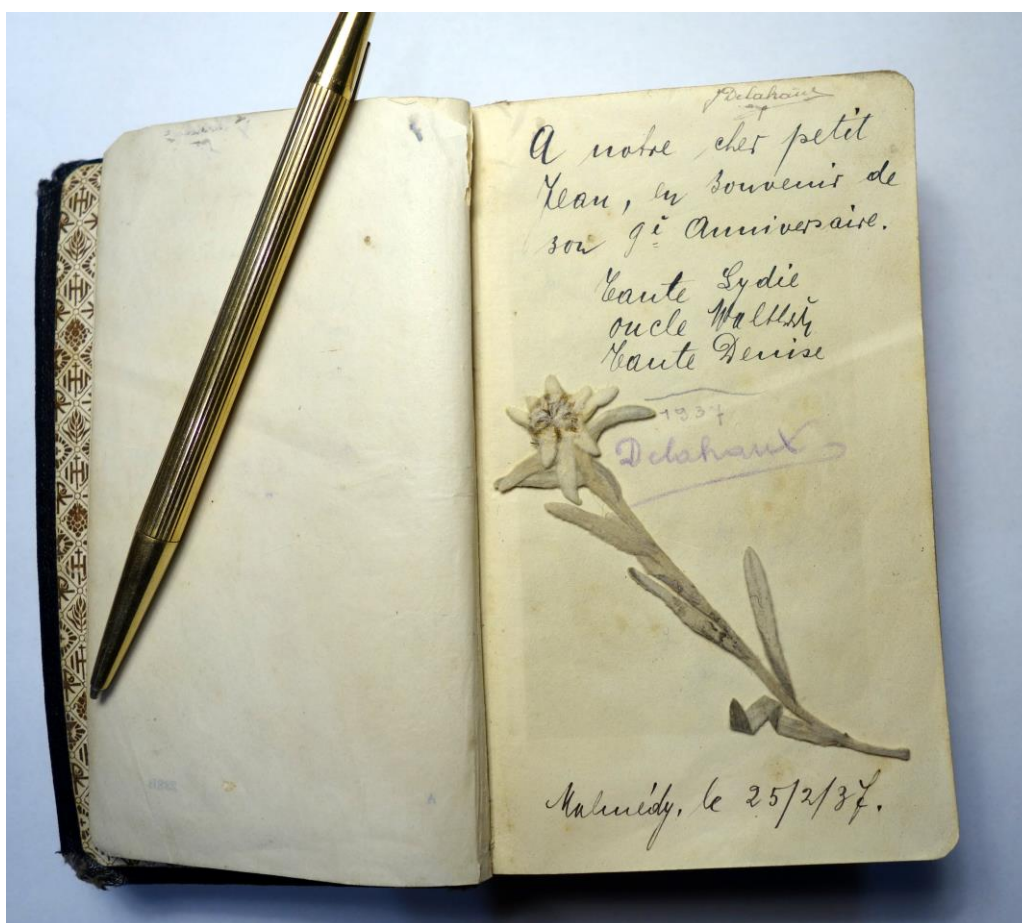 JDelahaux
A notre cher petit
Jean, en souvenir de
son 9è Anniversaire.
Tante Lydie
oncle
Tante Denise
1937
Delahaux
Malmédy, le 25/2/37.